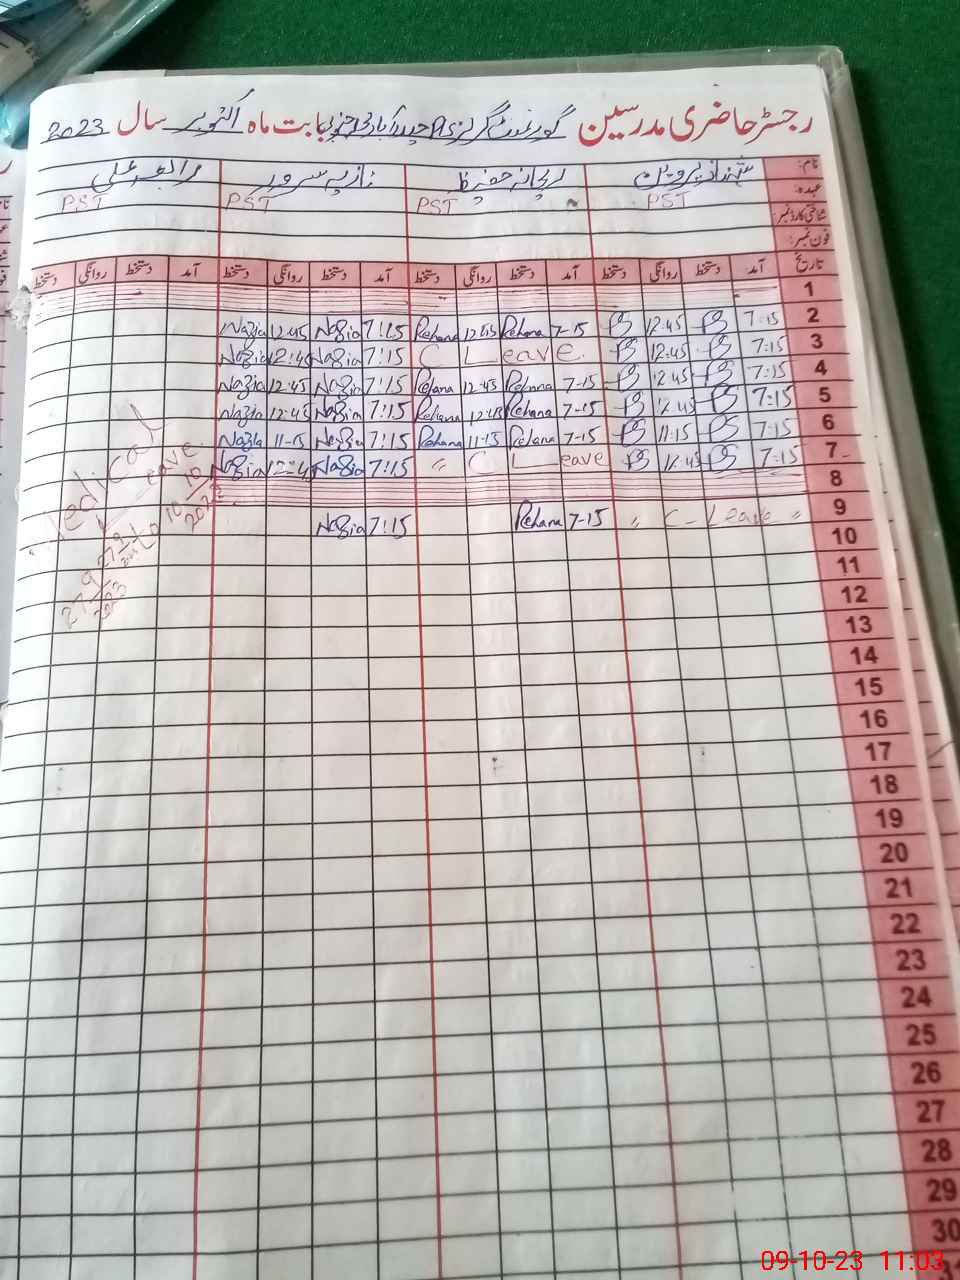 رجسٹر حاضری مدرسین گورنمنٹ گرلز بابت ماہ اکتوبر سال 2023
نام: شہناز پروین ریحانہ حفیظ نازیہ سرور
عہدہ: PST PST PST PST
شناختی کارڈ نمبر:
فون نمبر:
تاریخ آمد دستخط روانگی دستخط آمد دستخط روانگی دستخط آمد دستخط روانگی دستخط آمد دستخط روانگی دستخط
1
2 7:15 12:45 7-15 Rehana 12:45 Rehana 7:15 Nazia 12:45 Nazia
3 7:15 12:45 C Leave. 7:15 Nazia 12:45 Nazia
4 7:15 12:45 7-15 Rehana 12-45 Rehana 7:15 Nazia 12:45 Nazia
5 7:15 12:45 7-15 Rehana 12:45 Rehana 7:15 Nazia 12:45 Nazia
6 7:15 11:15 7-15 Rehana 11-15 Rehana 7:15 Nazia 11-15 Nazia
7 7:15 12:45 " C Leave 7:15 Nazia 12:45 Nazia
8
9 " C-Leave " 7-15 Rehana 7:15 Nazia
Medical
Leave
27/9/2023 to 10/10/2023
10
11
12
13
14
15
16
17
18
19
20
21
22
23
24
25
26
27
28
29
30
31
09-10-23 11:03